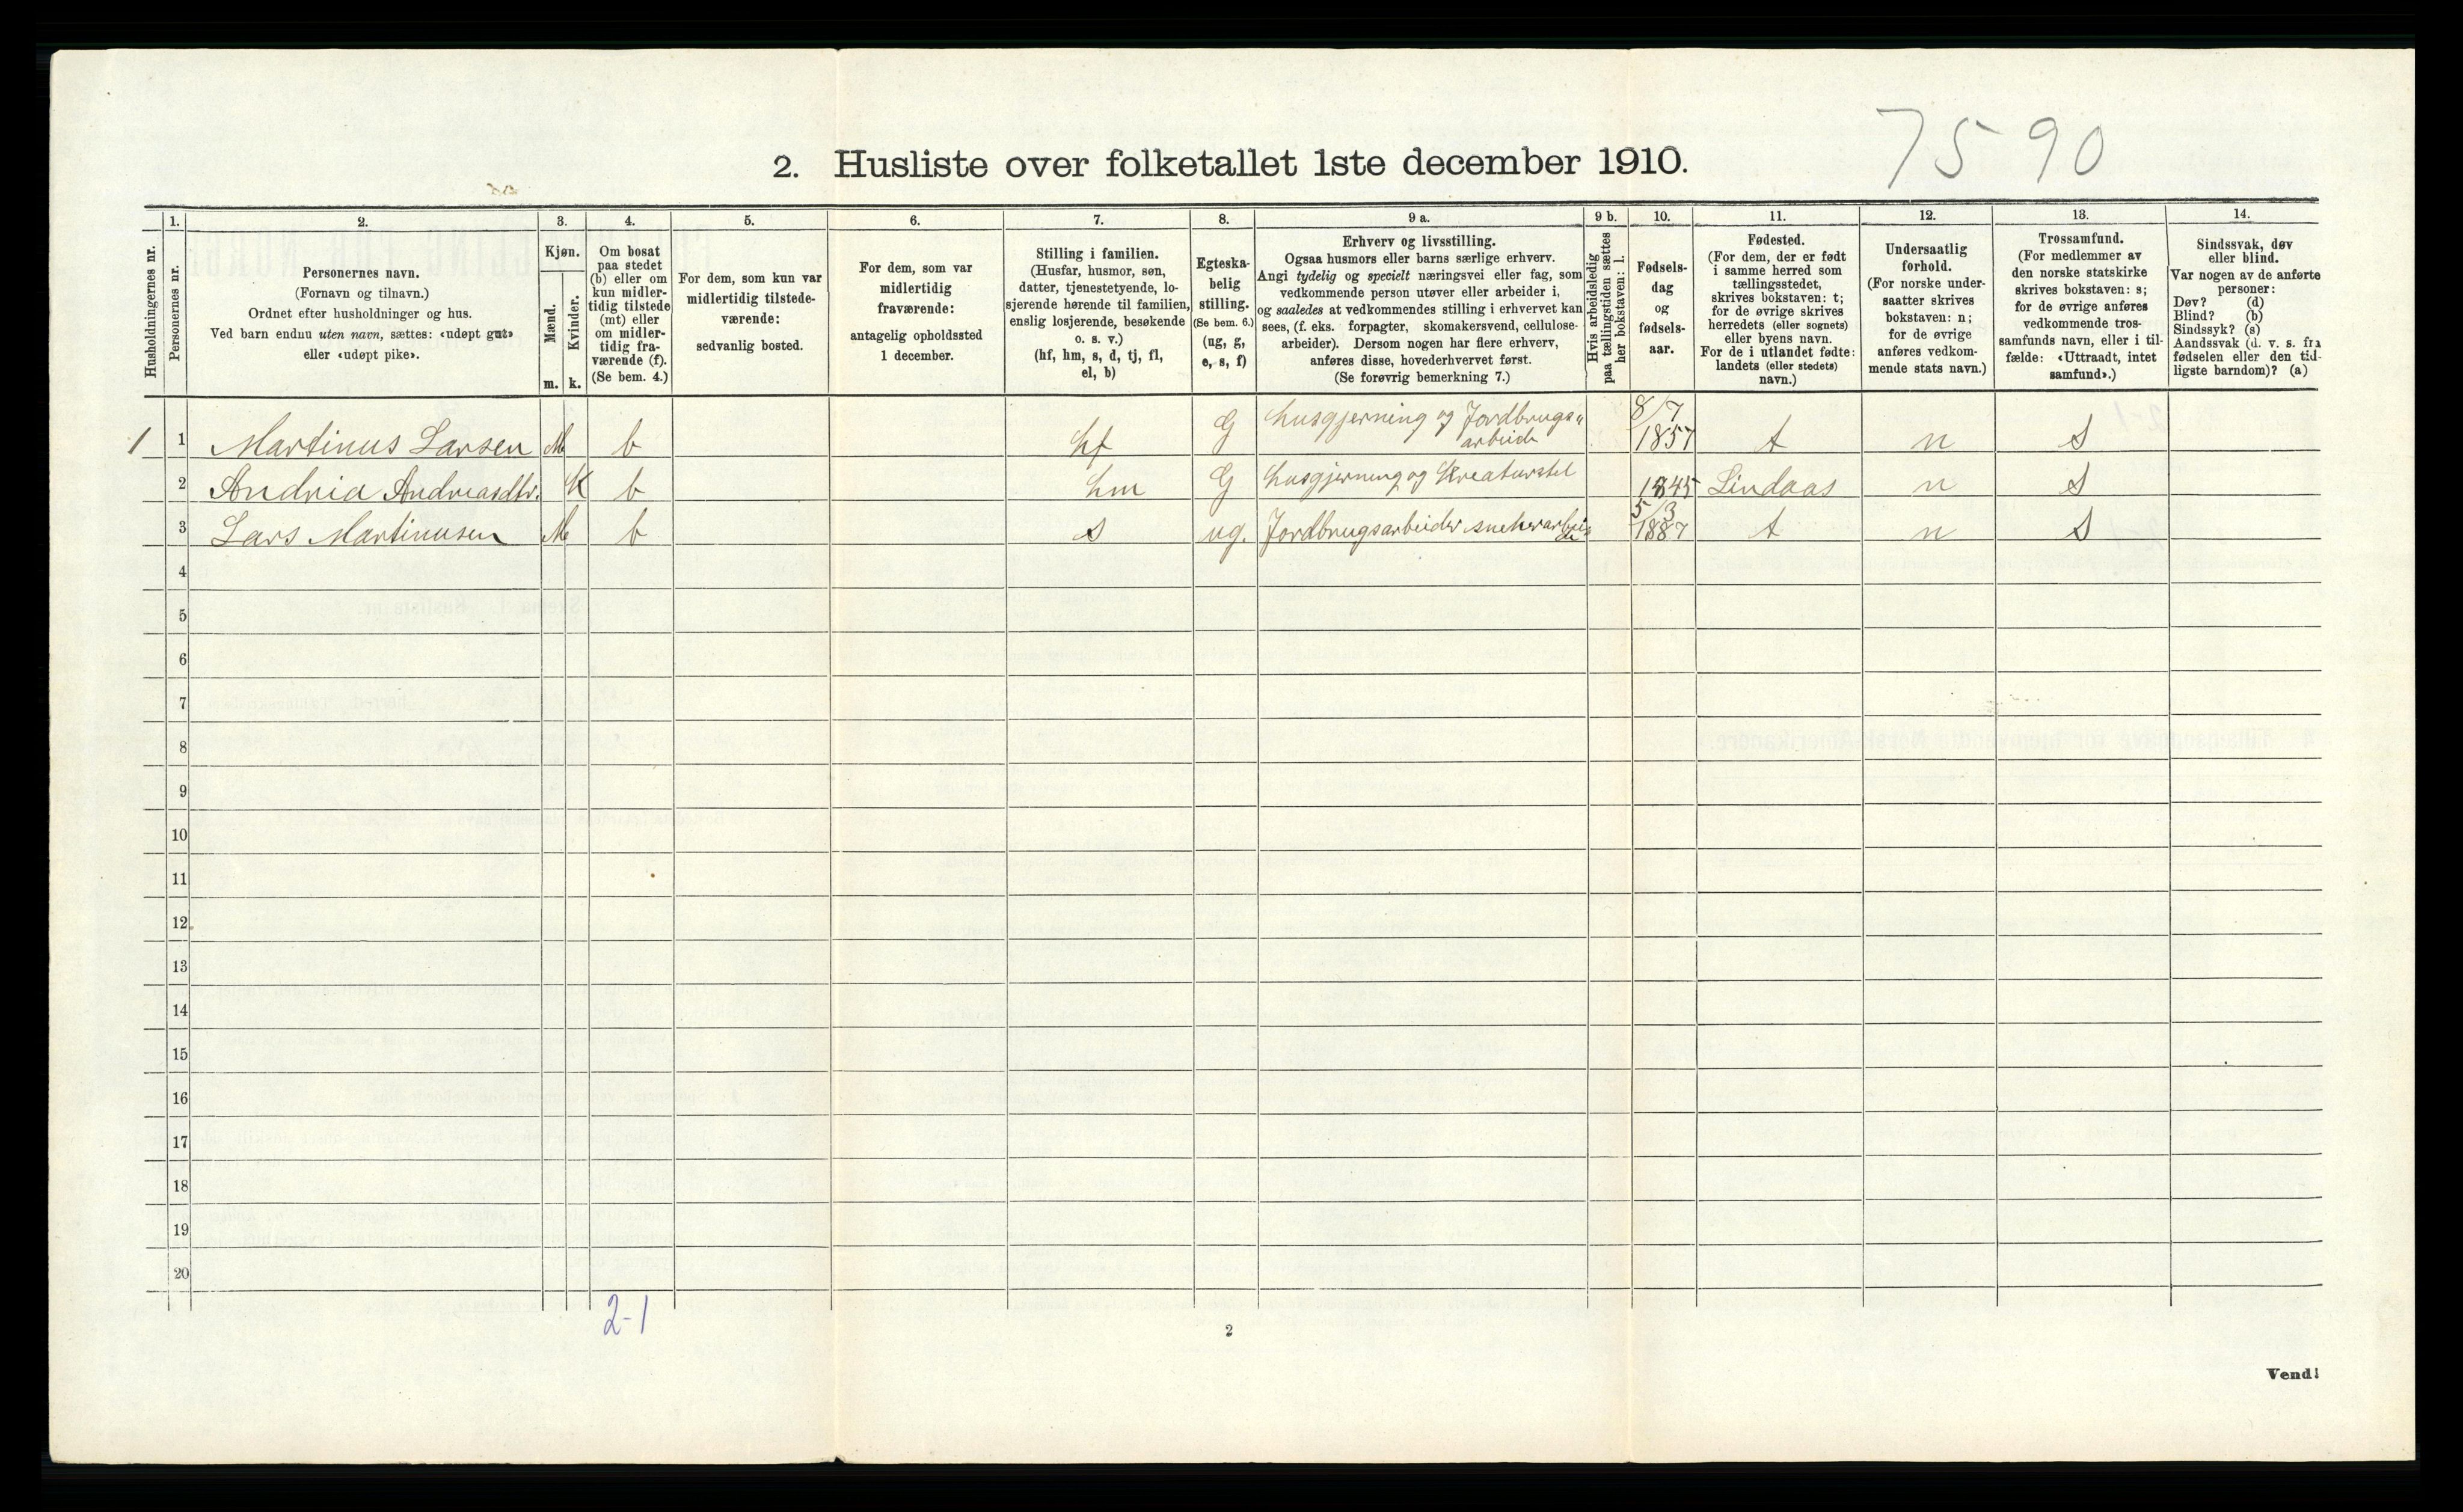 7590
2. Husliste over folketallet 1ste december 1910.
Husholdningernes nr.
1.
Personernes nr.
2.
Personernes navn.
(Fornavn og tilnavn.)
Ordnet efter husholdninger og hus.
Ved barn endnu uten navn, sættes: «udøpt gut»
eller «udøpt pike».
3.
Kjøn.
Mænd.
m.
Kvinder.
k.
4.
Om bosat
paa stedet
(b) eller om
kun midler-
tidig tilstede
(mt) eller
om midler-
tidig fra-
værende (f).
(Se bem. 4.)
5.
For dem, som kun var
midlertidig tilstede-
værende:
sedvanlig bosted.
6.
For dem, som var
midlertidig
fraværende:
antagelig opholdssted
1 december.
7.
Stilling i familien.
(Husfar, husmor, søn,
datter, tjenestetyende, lo-
sjerende hørende til familien,
enslig losjerende, besøkende
o. s. v.)
(hf, hm, s, d, tj, fl,
el, b)
8.
Egteska-
belig
stilling.
(Se bem. 6.)
(ug, g,
e, s, f)
9 a.
Erhverv og livsstilling.
Ogsaa husmors eller barns særlige erhverv.
Angi tydelig og specielt næringsvei eller fag, som
vedkommende person utøver eller arbeider i,
og saaledes at vedkommendes stilling i erhvervet kan
sees, (f. eks. forpagter, skomakersvend, cellulose-
arbeider). Dersom nogen har flere erhverv,
anføres disse, hovederhvervet først.
(Se forøvrig bemerkning 7.)
9 b.
Hvis arbeidsledig
paa tællingstiden sættes
her bokstaven: l.
10.
Fødsels-
dag
og
fødsels-
aar.
11.
Fødested.
(For dem, der er født
i samme herred som
tællingsstedet,
skrives bokstaven: t;
for de øvrige skrives
herredets (eller sognets)
eller byens navn.
For de i utlandet fødte:
landets (eller stedets)
navn.)
12.
Undersaatlig
forhold.
(For norske under-
saatter skrives
bokstaven: n;
for de øvrige
anføres vedkom-
mende stats navn.)
13.
Trossamfund.
(For medlemmer av
den norske statskirke
skrives bokstaven: s;
for de øvrige anføres
vedkommende tros-
samfunds navn, eller i til-
fælde: «Uttraadt, intet
samfund».)
14.
Sindssvak, døv
eller blind.
Var nogen av de anførte
personer:
Døv? (d)
Blind? (b)
Sindssyk? (s)
Aandssvak (d. v. s. fra
fødselen eller den tid-
ligste barndom)? (a)
1 1 Martinus Larsen M b hf G husgjerning og Jordbrugs" arbeide 8/7 1857 t n S
2 Andria Andreasdtr. K b hm G husgjerning og Kreaturstel 1845 Lindaas n S
3 Lars Martinusen M b s ug. Jordbrugsarbeider snekerarbei= de 5/3 1887 t n S
4
5
6
7
8
9
10
11
12
13
14
15
16
17
18
19
20
2-1
2
Vend!